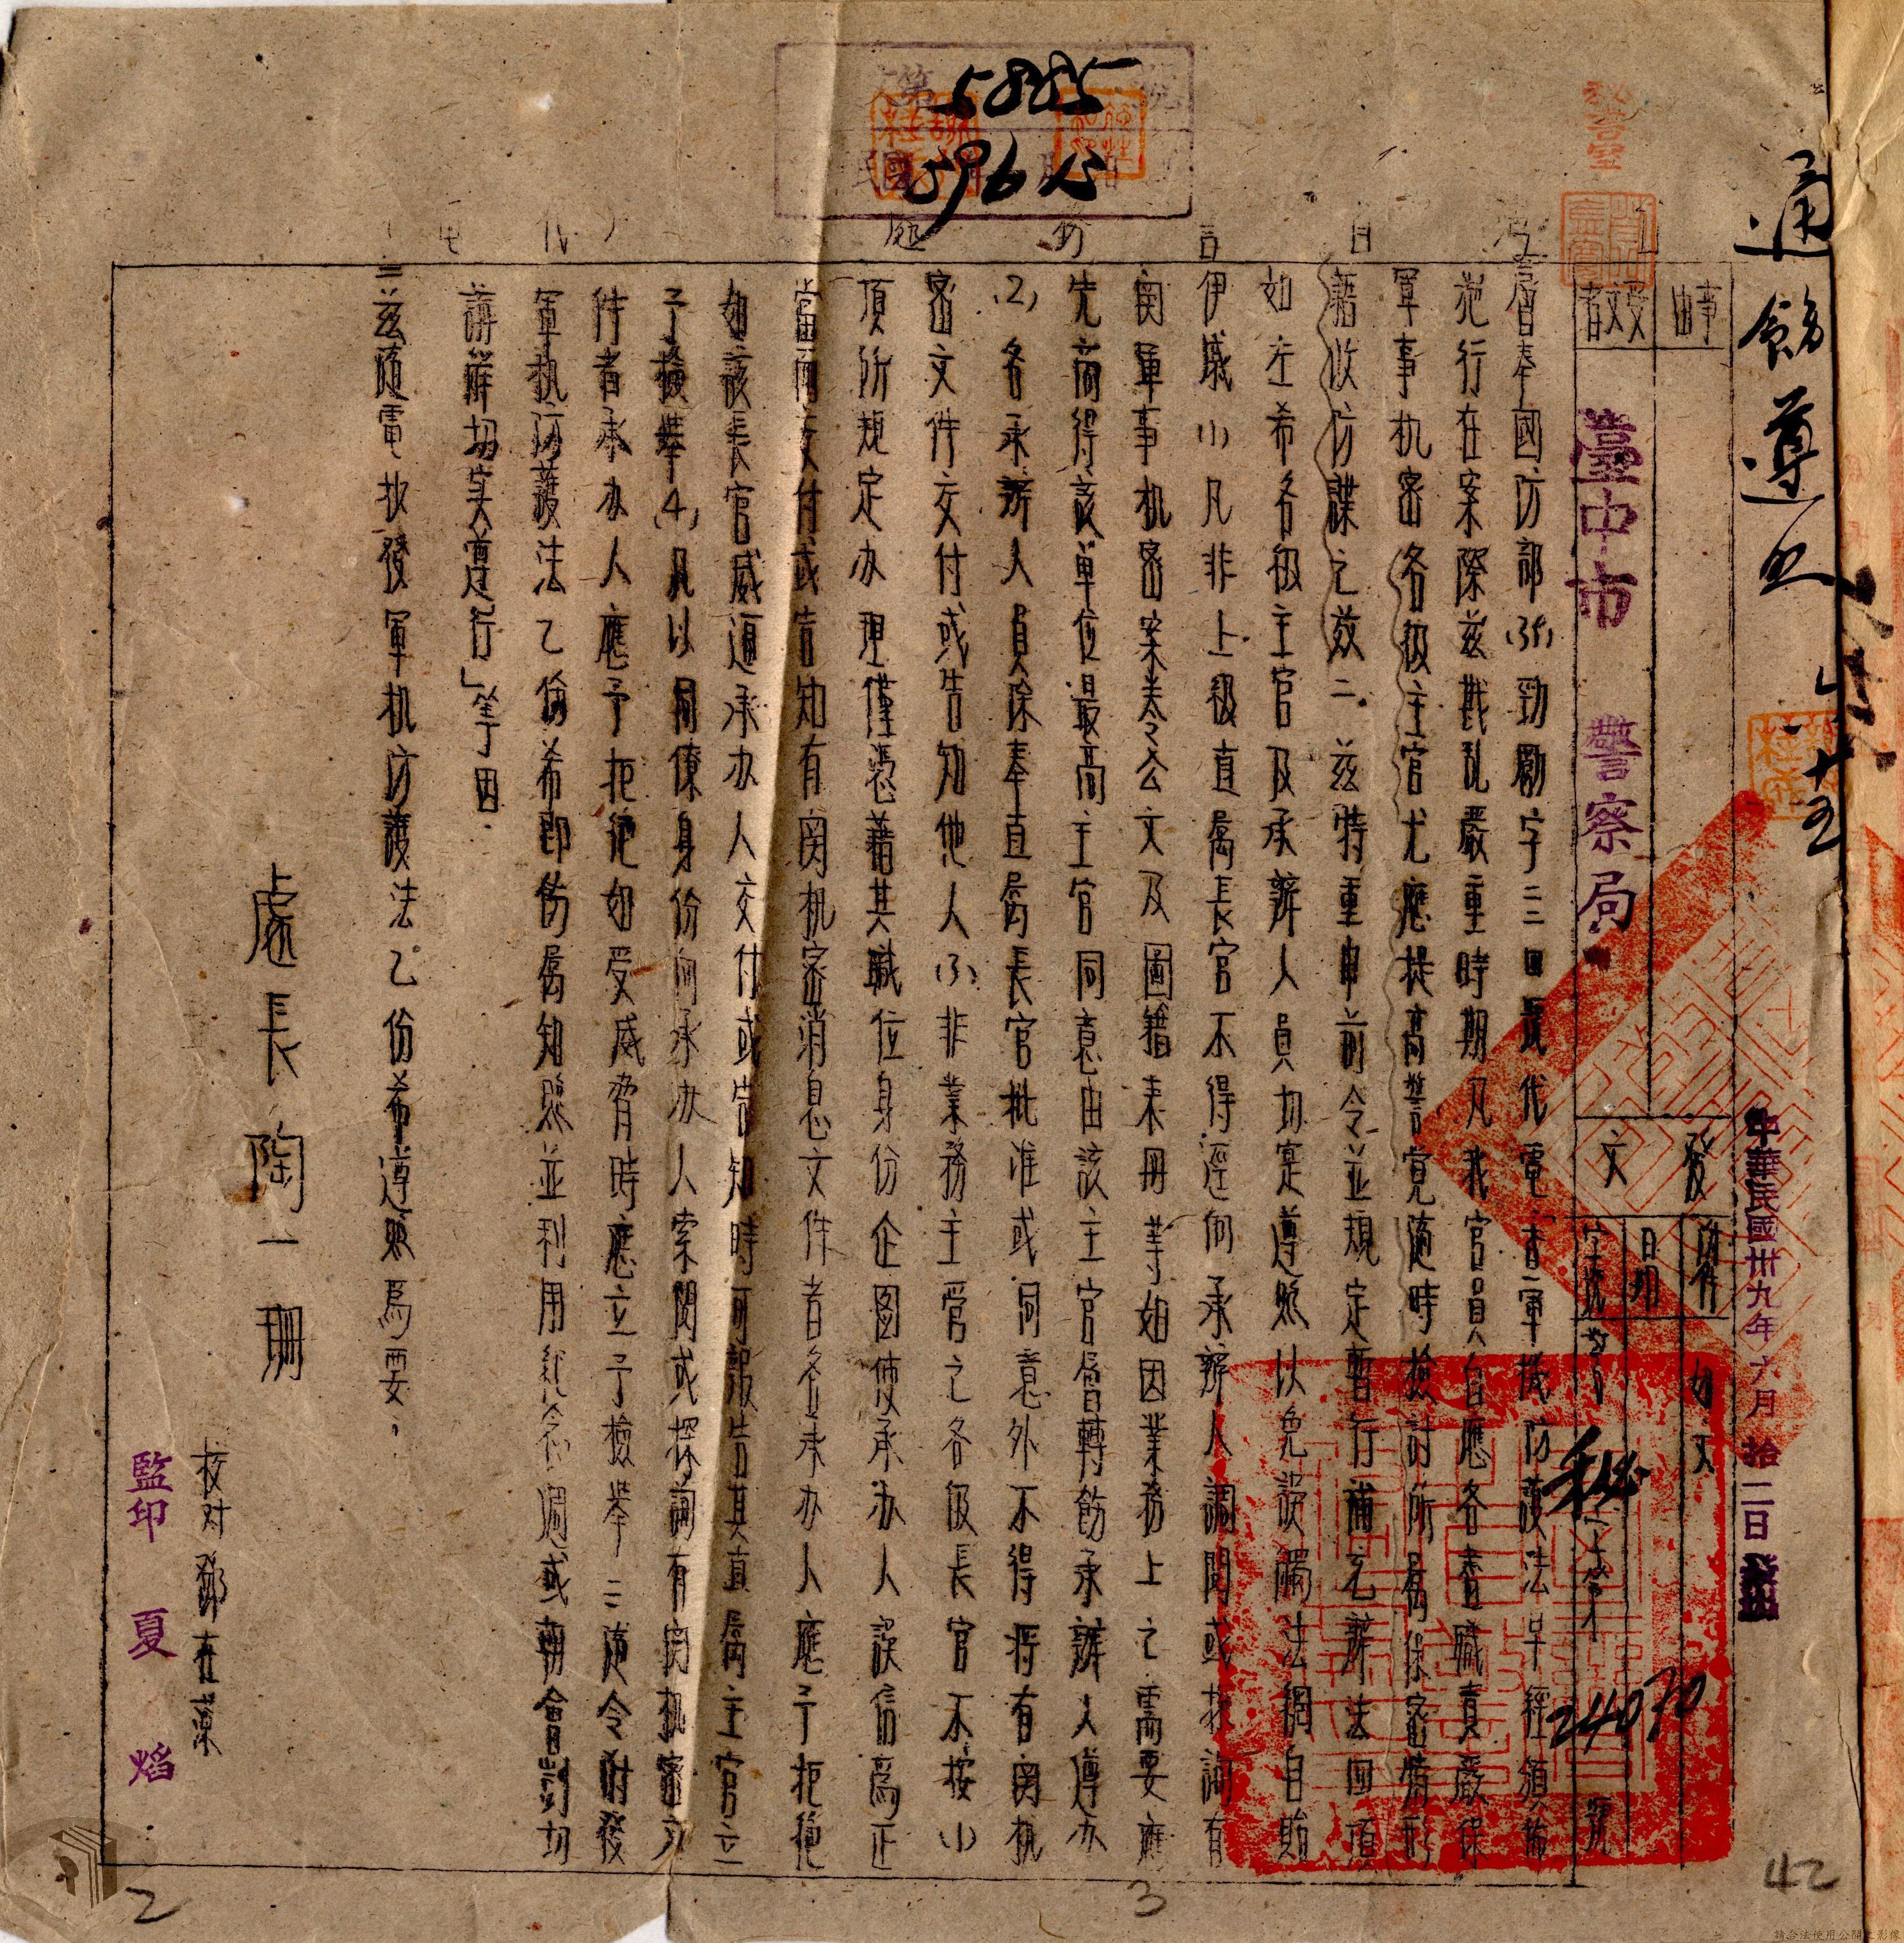 通飭遵照
中華民國卅九年六月拾二日發
事由
受文者
臺中市警察局
發文
附件
如文
日期
字號
秘
字第
24070
號
第5885號
民國
層奉國防部(39)勁勵字三三四號代電「查軍機防護法早經頒佈
施行在案際茲戡乱嚴重時期凡我官員自應各盡職責嚴保
軍事机密各級主官尤應提高警覺隨時檢討所屬保密情形
藉收防諜之效二、茲特重申前令並規定暫行補充辦法四項
如左希各級主官及承辦人員切寔遵照以免誤觸法網自貽
伊戚(1)凡非上級直屬長官不得逕向承辦人調閱或探詢有
関軍事机密案卷公文及圖籍表冊等如因業務上之需要應
先商得該單位最高主官同意由該主官層轉飭承辦人遵办
(2)各承辦人員除奉直屬長官批准或同意外不得將有関机
密文件交付或告知他人(3)非業務主管之各級長官不按(1)
項所規定办理僅憑藉其職位身份企图使承办人誤信為正
當而交付或告知有関机密消息文件者各承办人應予拒絕
如該長官威逼承办人交付或告知時可報告其直屬主官立
予檢舉(4)凡以同僚身份向承办人索閱或探詢有関机密文
件者承办人應予拒絕如受威脅時應立予檢舉三隨令附發
軍机防護法乙份希即飭屬知照並利用紀念週或朝會剴切
講解切实遵行」等因
二茲隨電抄發軍机防護法乙份希遵照為要
處長陶一珊
校对鄧在葉
監印夏焰
42
3
2